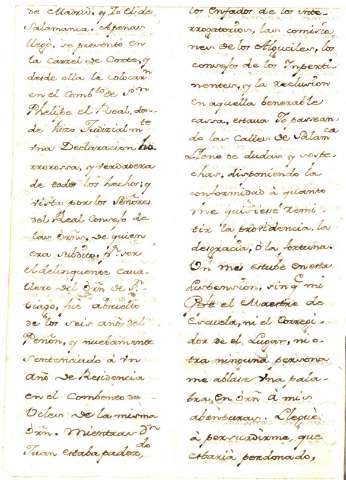 de Madrid, y Yo el de
Salamanca. Apenas
llegò, se presentò en
la Carzel de Corte, y
desde ella le colocarn
en el Combto de Sn
Phelipe el Real, don-
de hizo Judizialmte
vna Declaracion ho
rrorossa, y verdadera
de todos los hechos; y
vista por los Señores
del Real Consejo de
las Ôrns, de quien
era subdito, pr ser
el delinquente Cava-
llero del Ôrn de Sn
tiago, fuè absuelto
de los seis años del
Peñon, y nuebamente
sentenciado à vn
año de Residencia
en el Combento de
Ucles de la misma
Ôrn. Mientras Dn
Juan estaba padedo,
los Enfados de los inte-
rrogatorios, las comisio-
nes de los Alguciles, los
consejos de los Inperti-
nentes, y la reclusion
en aquella benerable
cassa, estava Yo passean
do las Calles de Salamca
Lleno de dudas y sospe-
chas, disponiendo la
conformidad à quanto
me quisiesse remi-
tir la providencia, la
desgracia, ò la fortuna.
Un mes estube en esta
suspension, sin q̃ mi
Pre el Maestre de
Escuela, ni el Corregi-
dor de el Lugar, ni o-
tra ninguna persona
me ablasse vna pala-
bra, en Ôrn à mis
abenturas. Lleguè
à persuadirme, que
estaria perdonado,